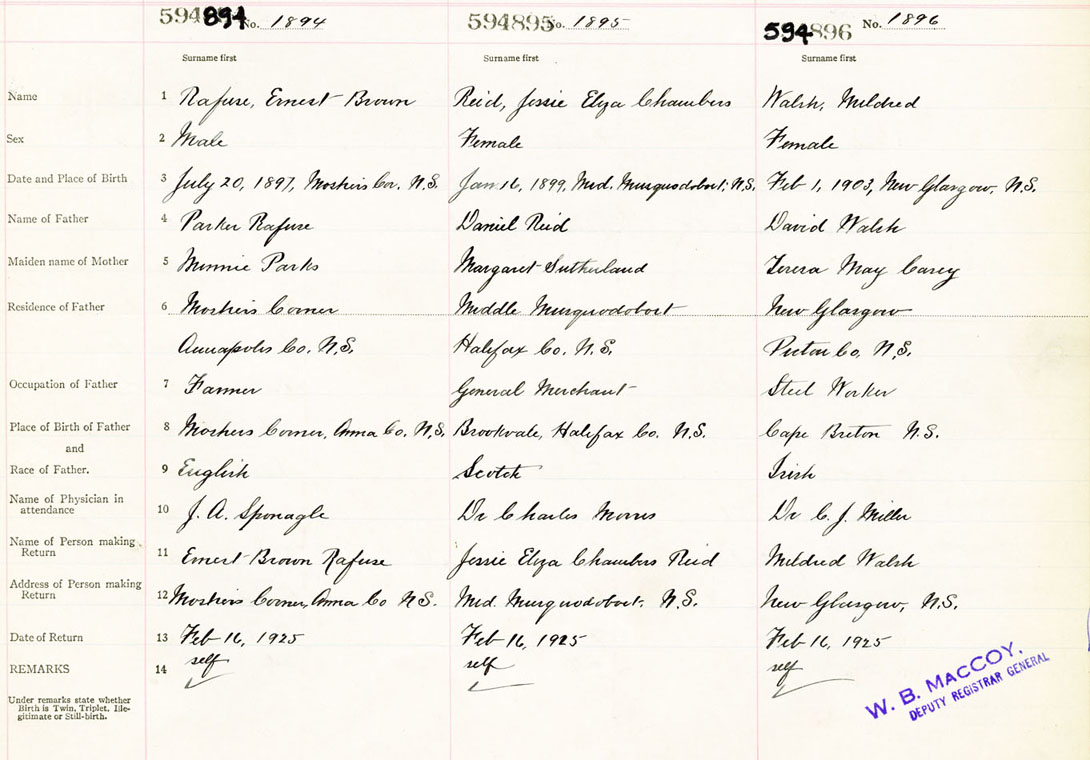 594894 No. 1894 594895 No. 1895 594896 No. 1896
Surname first Surname first Surname first
Name 1 Rafuse, Ernest Brown Reid, Jessie Elza Chambers Walsh, Mildred
Sex 2 Male Female Female
Date and Place of Birth 3 July 20, 1897, Moshers Cor. N.S. Jan 16, 1899, Mid. Musquodoboit, N.S. Feb 1, 1903, New Glasgow, N.S.
Name of Father 4 Parker Rafuse Daniel Reid David Walsh
Maiden name of Mother 5 Minnie Parks Margaret Sutherland Teresa May Carey
Residence of Father 6 Moshers Corner Middle Musquodoboit New Glasgow
Annapolis Co. N.S. Halifax Co. N.S. Pictou Co. N.S.
Occupation of Father 7 Farmer General Merchant Steel Worker
Place of Birth of Father 8 Moshers Corner, Anna Co. N.S. Brookvale, Halifax Co. N.S. Cape Breton N.S.
and
Race of Father. 9 English Scotch Irish
Name of Physician in
attendance 10 J. A. Sponagle Dr Charles Morris Dr C. J. Miller
Name of Person making
Return 11 Ernest Brown Rafuse Jessie Elza Chambers Reid Mildred Walsh
Address of Person making
Return 12 Moshers Corner, Anna Co N.S. Mid. Musquodoboit, N.S. New Glasgow, N.S.
Date of Return 13 Feb 16, 1925 Feb 16, 1925 Feb 16, 1925
REMARKS 14 self self self
Under remarks state whether
Birth is Twin, Triplet, Ille-
gitimate or Still-birth.
W. B. MACCOY,
DEPUTY REGISTRAR GENERAL